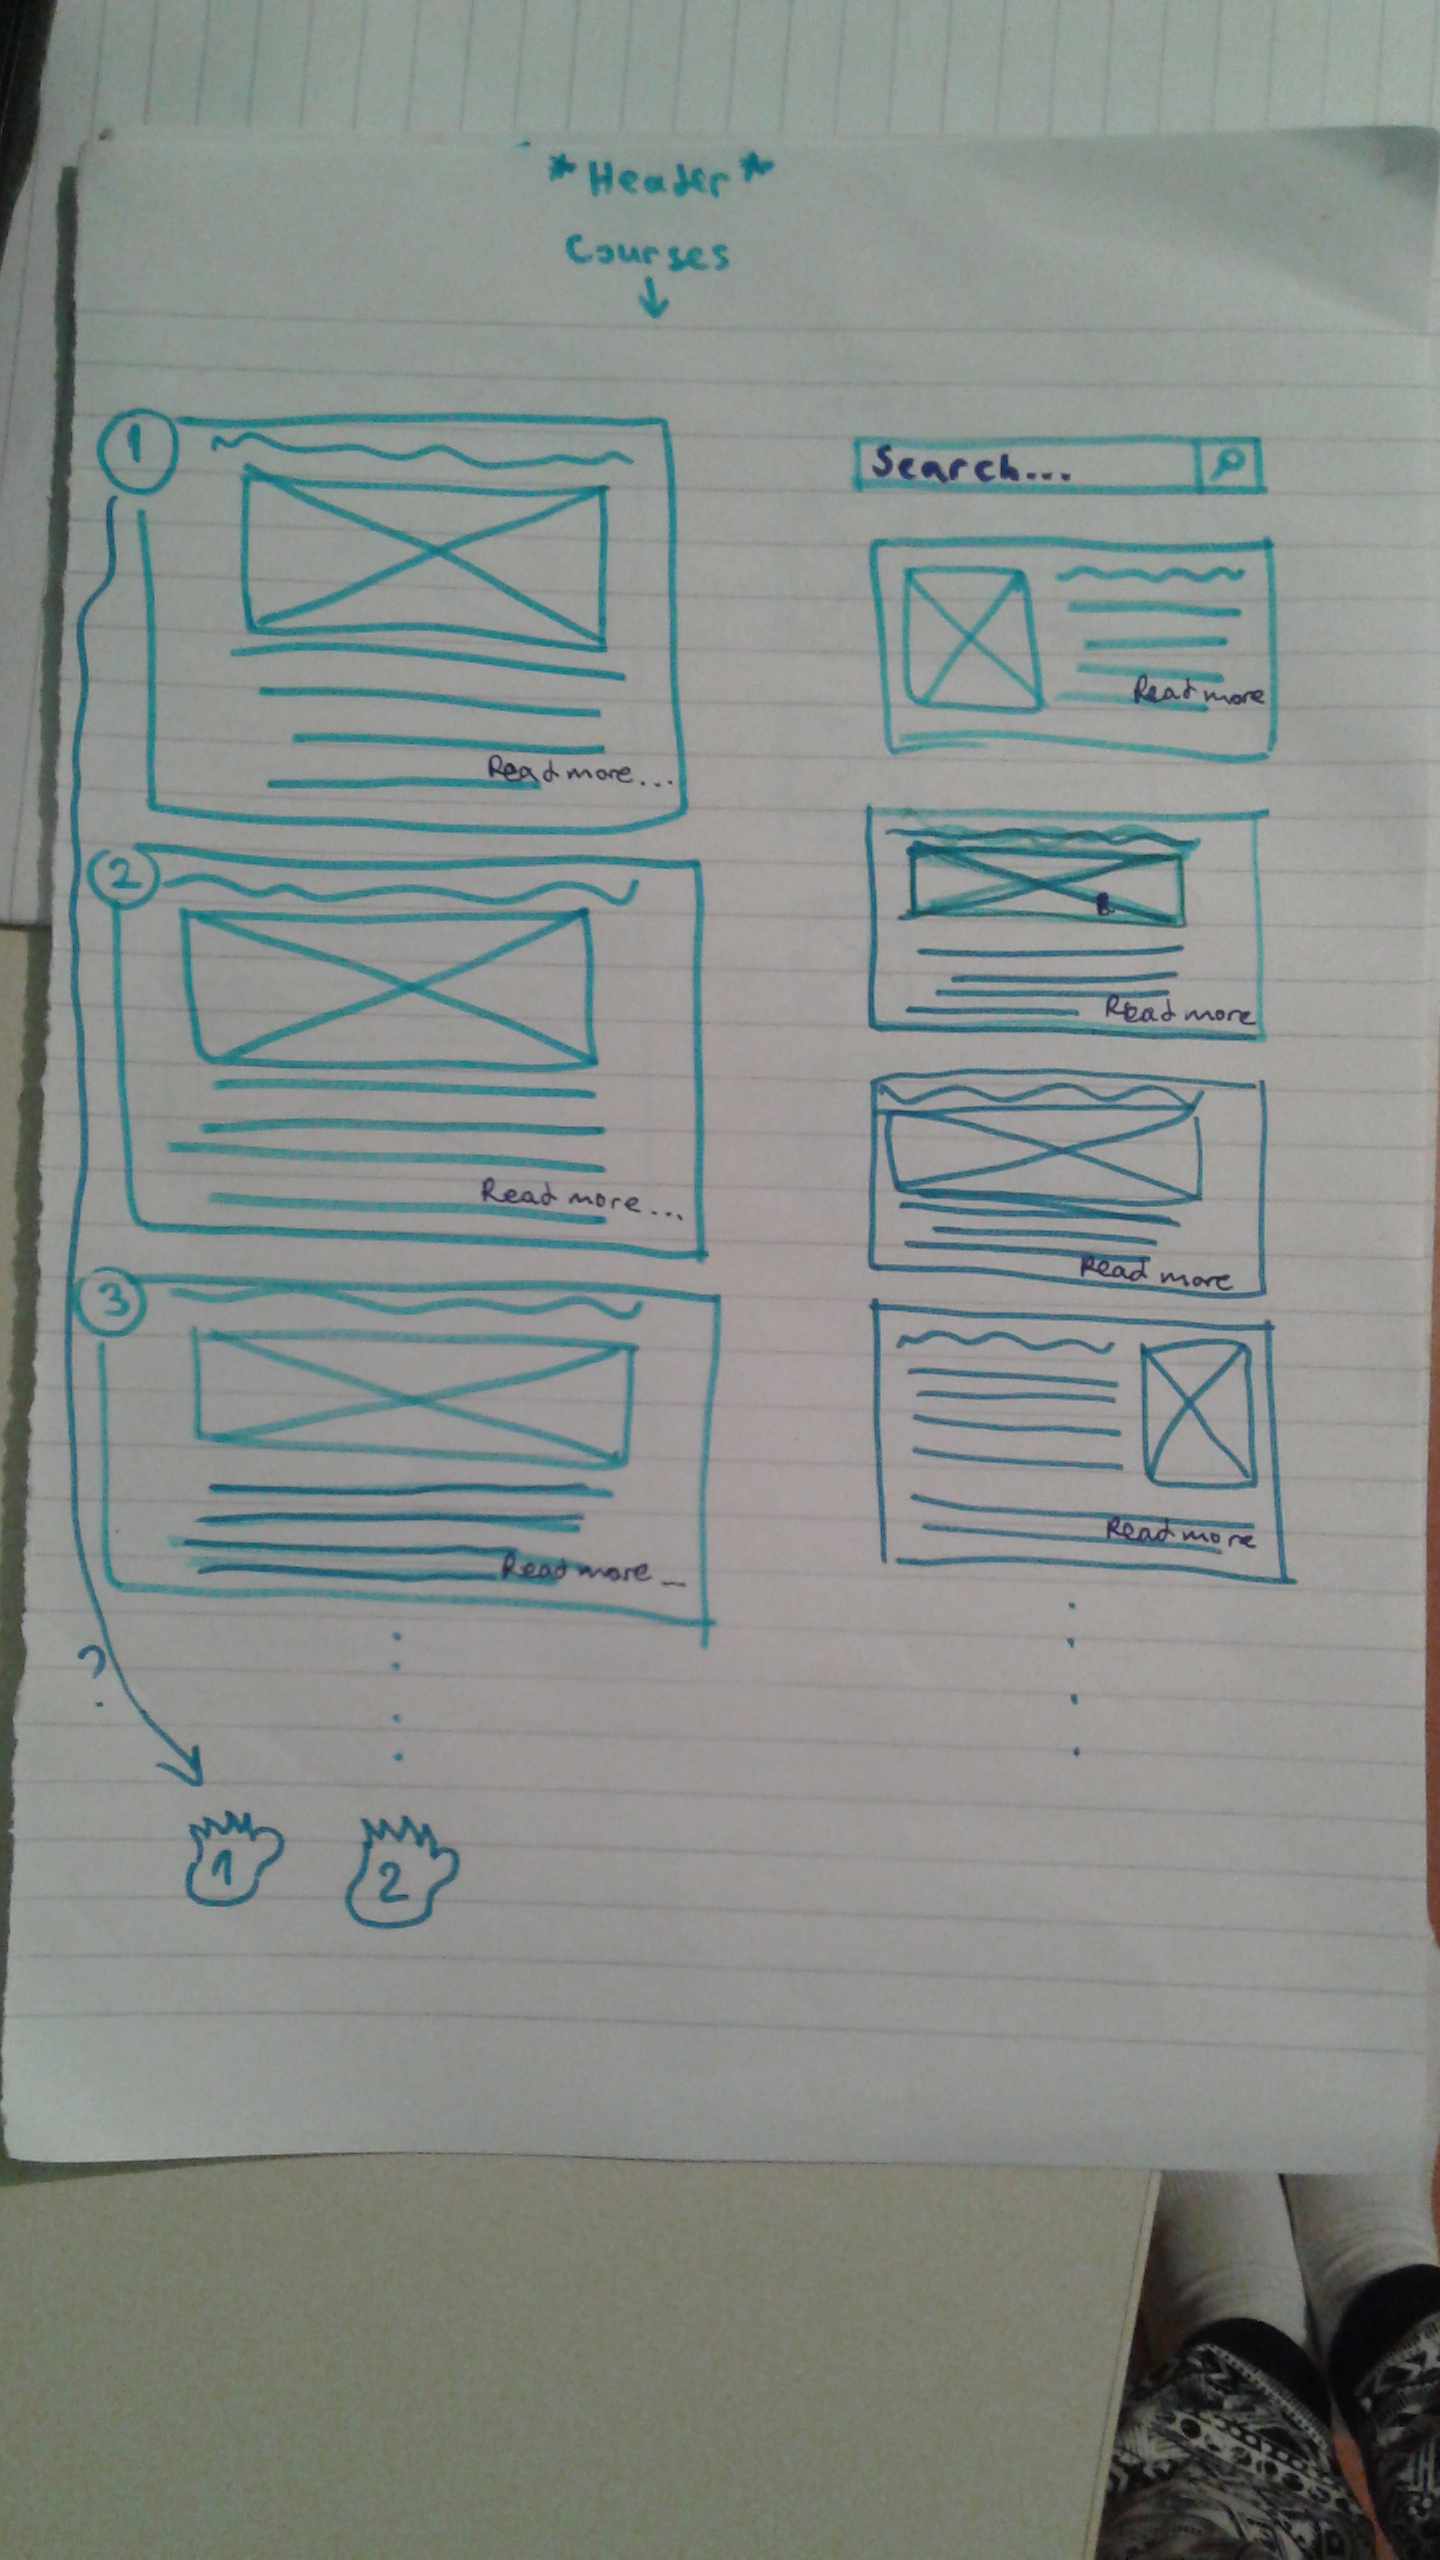 *Header*
Courses
1
Read more...
2
Read more...
3
Read more
?
1
2
Search...
Read more
Read more
Read more
Read more